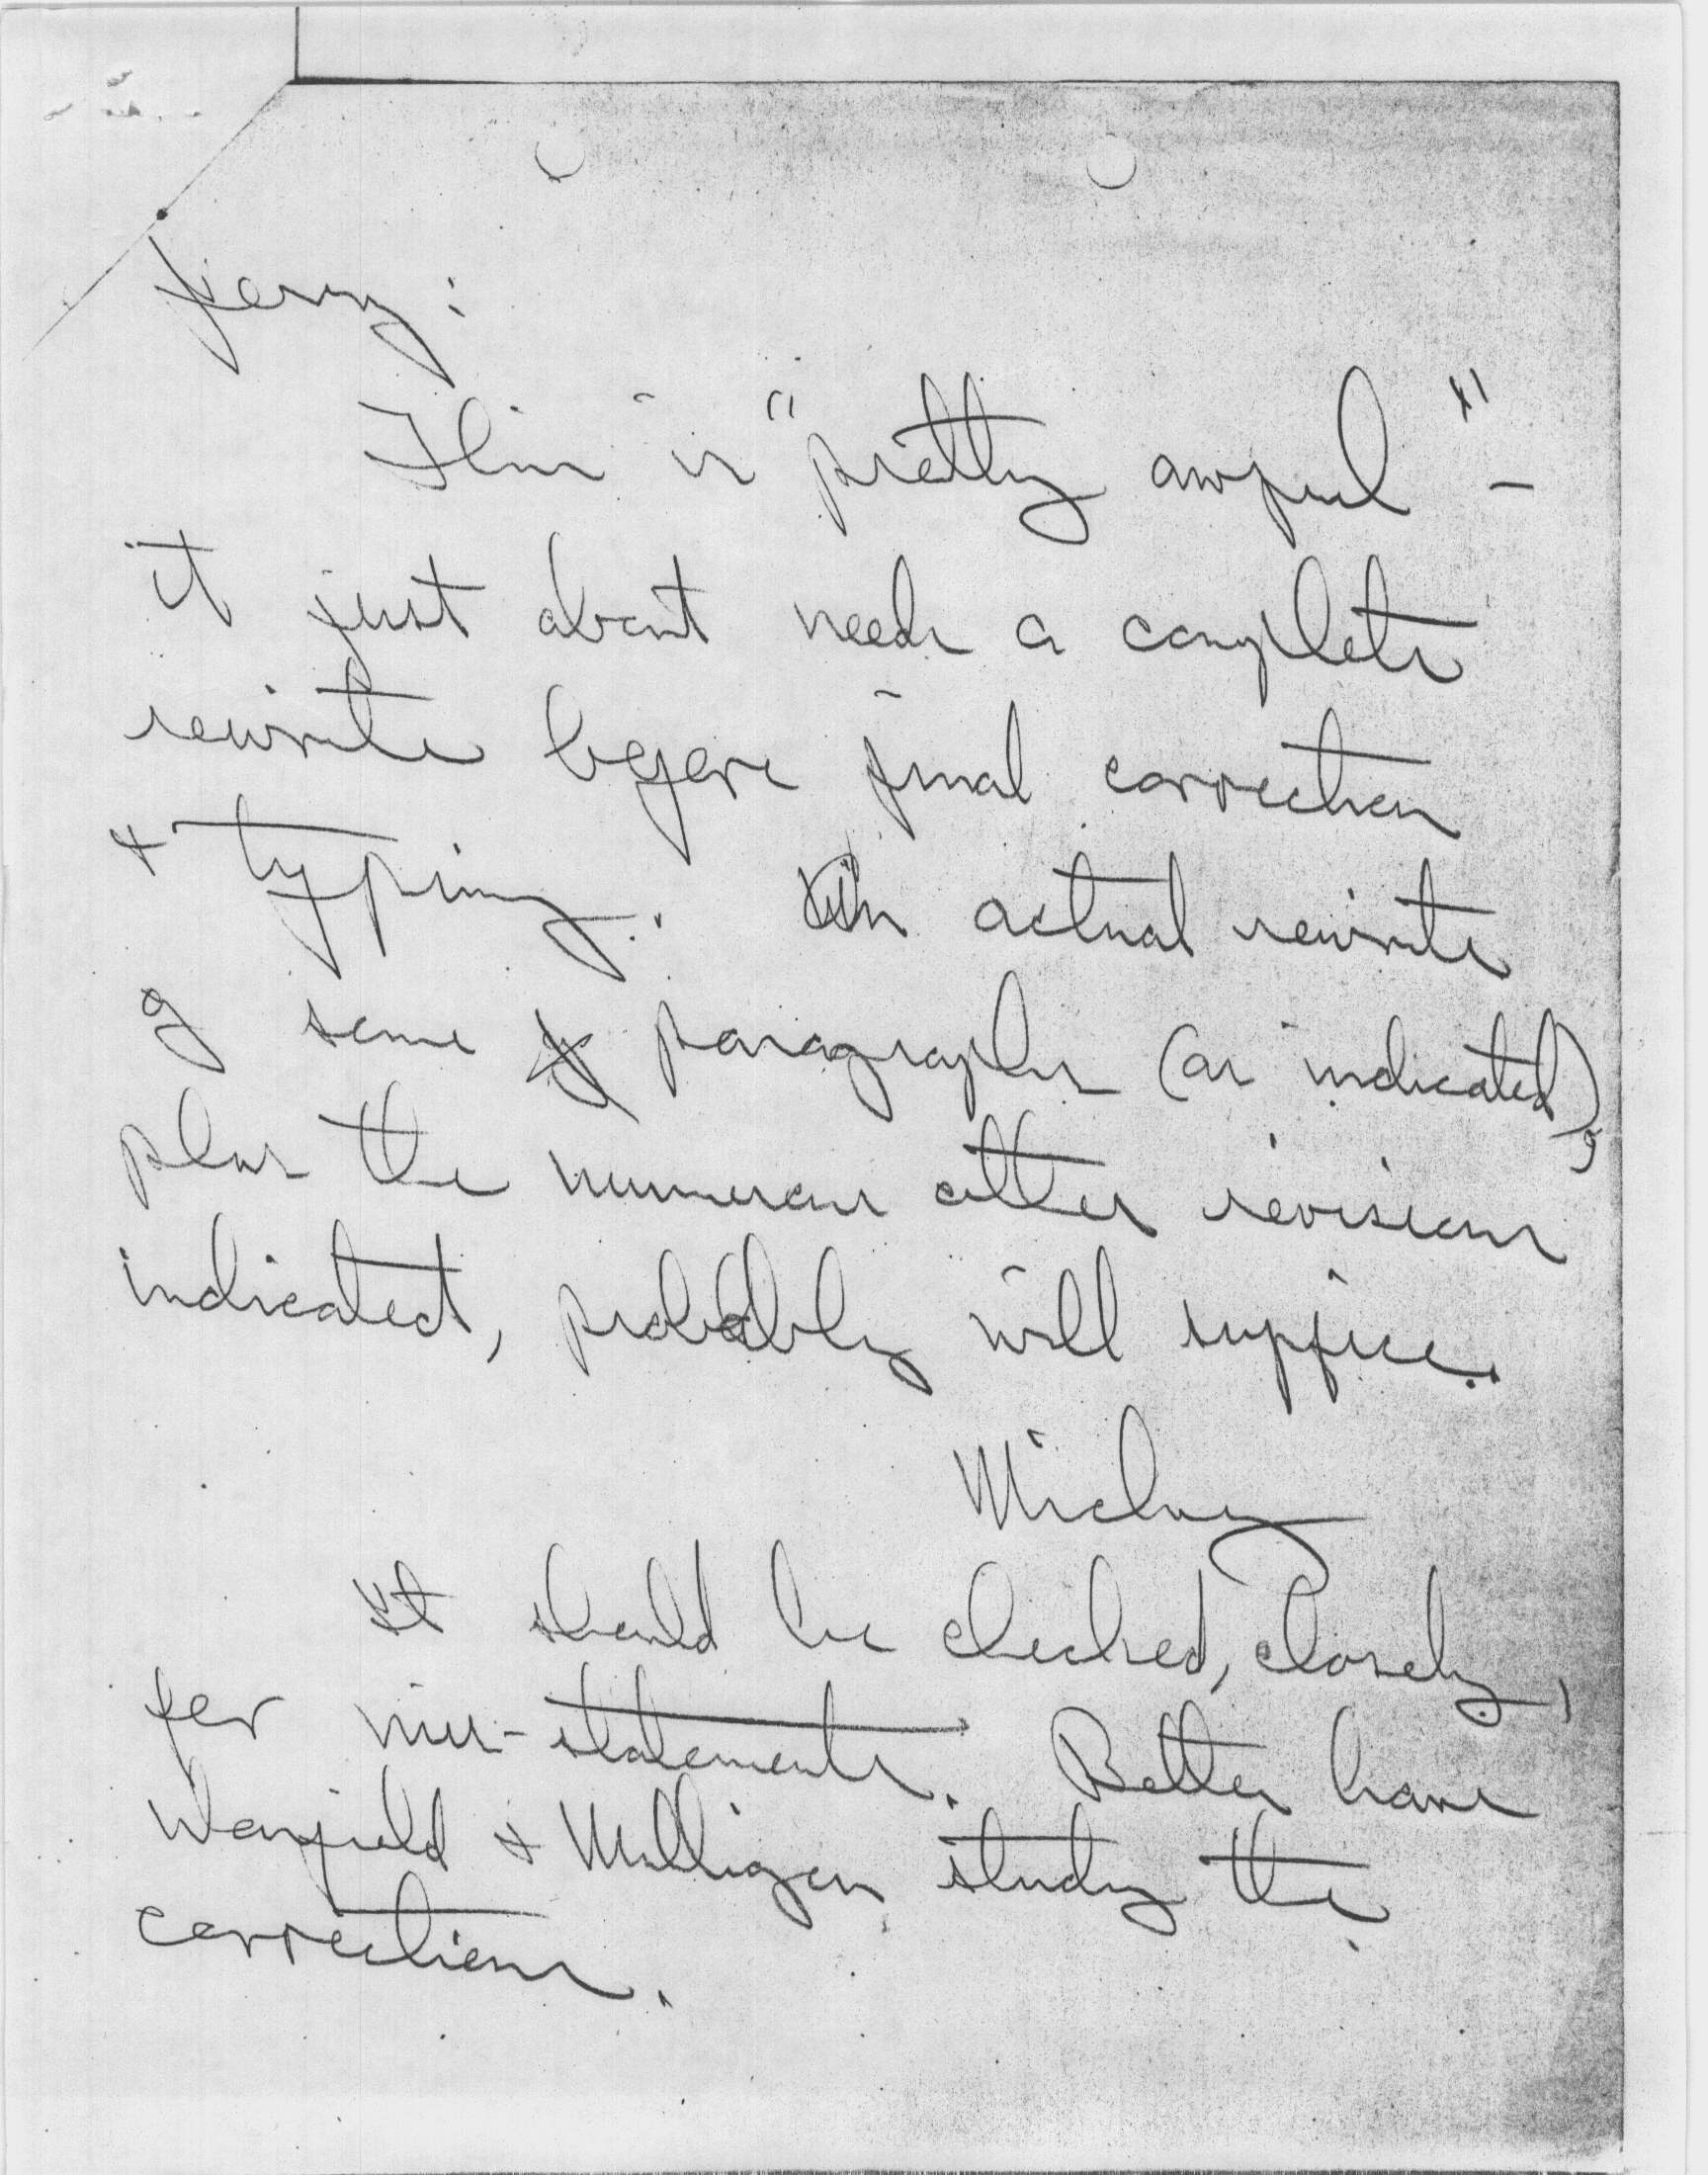 Jerry:
This is "pretty awful" -
it just about needs a complete
rewrite before final correction
& typing. An actual rewrite
of some paragraphs (as indicated),
plus the numerous other revisions
indicated, probably will suffice.
Mickey
It should be checked, closely,
for mis-statements. Better have
Warfield & Milligan study the
corrections.